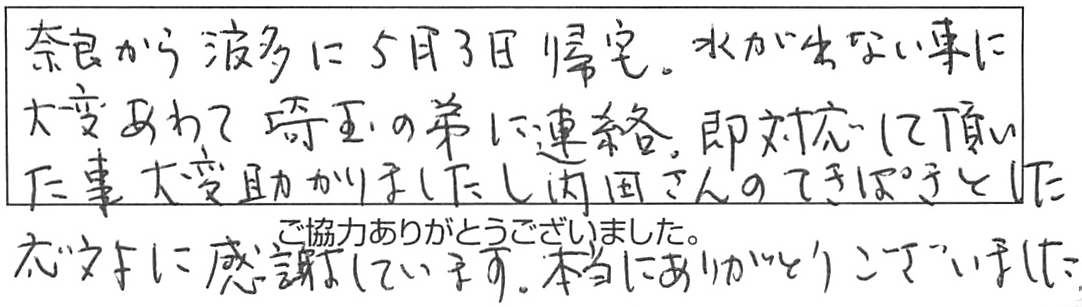 奈良から波多に5月3日帰宅。水が出ない事に
大変あわて埼玉の弟に連絡。即対応して頂い
た事大変助かりましたし内田さんのてきぱきとした
ご協力ありがとうございました。
応対に感謝しています。本当にありがとうございました